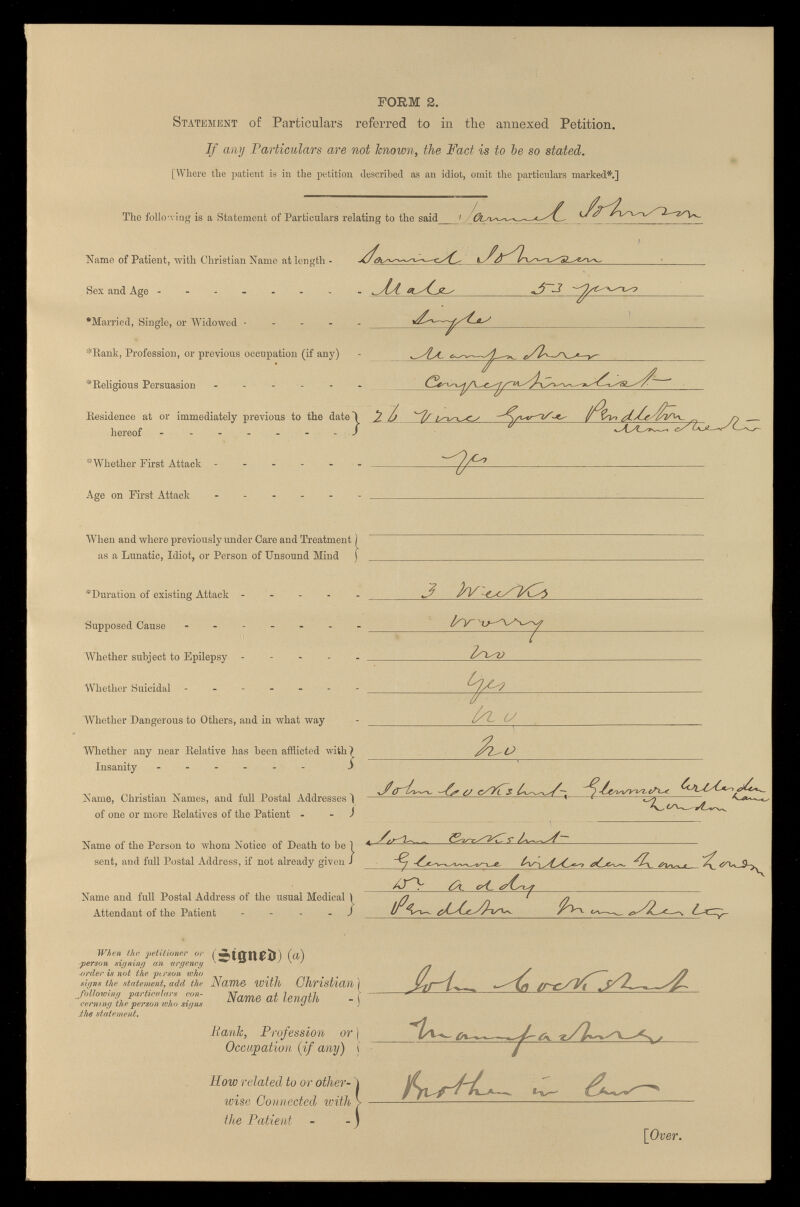 FORM 2.
STATEMENT of Particulars referred to in the annexed Petition.
If any Particulars are not known, the Fact is to be so stated.
[Where the patient is in the petition described as an idiot, omit the particulars marked*.]
The following is a Statement of Particulars relating to the said Samuel Johnson
Name of Patient, with Christian Name at length - Samuel Johnson
Sex and Age - - - - - - - - Male 53 years
*Married, Single, or Widowed - - - - - Single
*Rank, Profession, or previous occupation (if any) - Manufacturer
*Religious Persuasion - - - - - - Congregationalist
Residence at or immediately previous to the date 26 Vine Grove Pendleton
hereof - - - - - - - - Manchester
*Whether First Attack - - - - - - Yes
Age on First Attack - - - - - -
When and where previously under Care and Treatment
as a Lunatic, Idiot, or Person of Unsound Mind
*Duration of existing Attack - - - - - 3 Weeks
Supposed Cause - - - - - - - Worry
Whether subject to Epilepsy - - - - - No
Whether Suicidal - - - - - - - Yes
Whether Dangerous to Others, and in what way - No
Whether any near Relative has been afflicted with
Insanity - - - - - - No
Name, Christian Names, and full Postal Addresses John Cockshut, Glenmore Willesden Lane
of one or more Relatives of the Patient - - London
Name of the Person to whom Notice of Death to be John Cockshut
sent, and full Postal Address, if not already given Glenmore Willesden Lane London
Name and full Postal Address of the usual Medical Dr Addy
Attendant of the Patient - - - - Pendleton Manchester
When the petitioner or
person signing an urgency
order is not the person who
signs the statement, add the
following particulars con-
cerning the person who signs
the statement.
(Signed) (a)
Name with Christian
Name at length - John Cockshut
Rank, Profession or
Occupation (if any) Manufacturer
How related to or other-
wise Connected with
the Patient - - Brother in law
[Over.